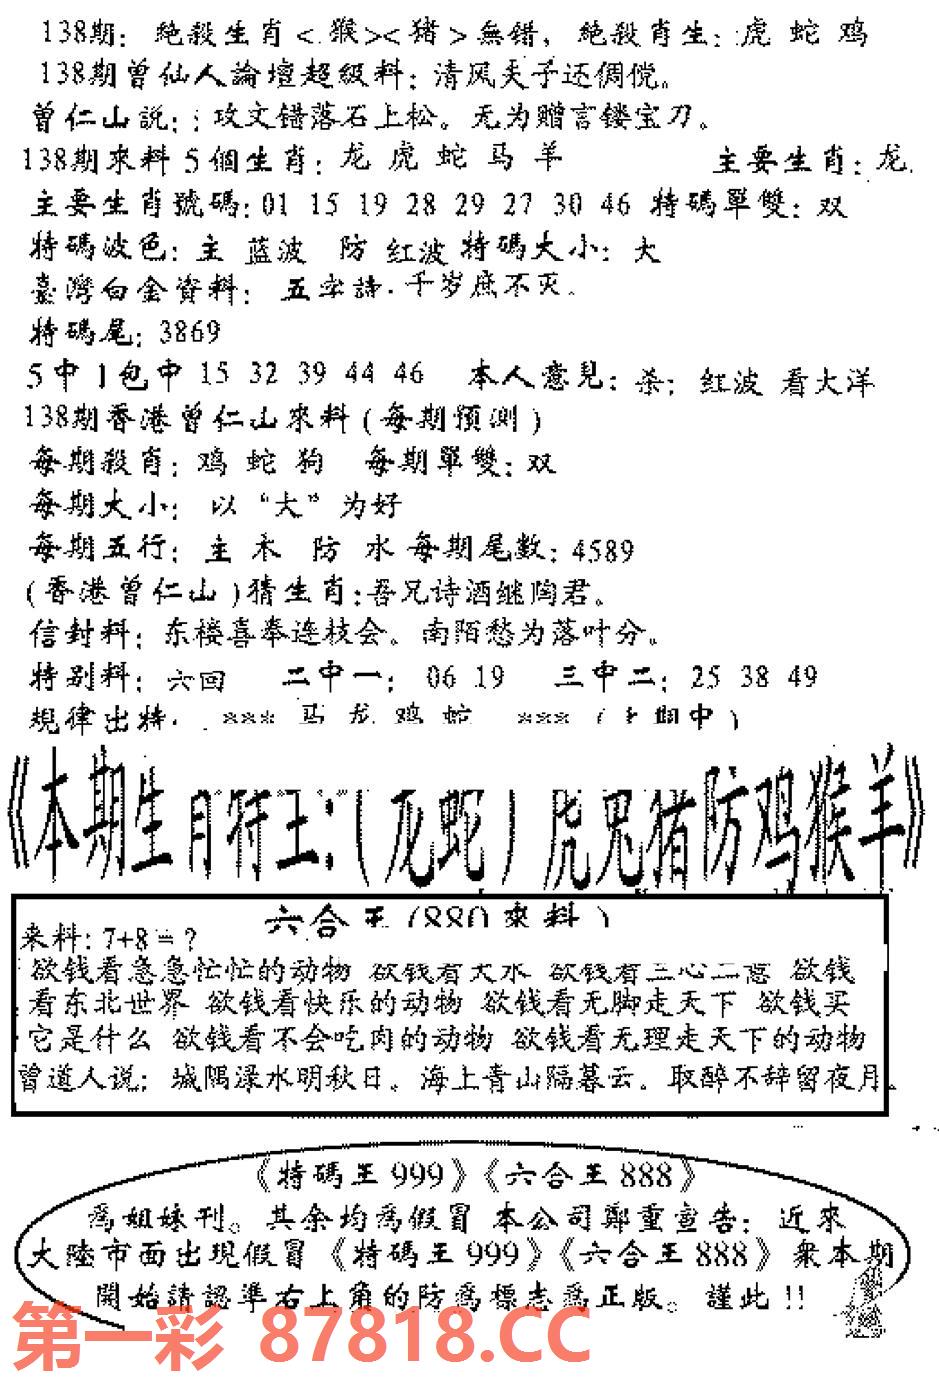 138期: 絶殺生肖<.猴><猪>無错, 絶殺肖生: 虎 蛇 鸡
138期曾仙人論壇超級料: 清风天子还倜傥。
曾仁山説: ; 攻文错落石上松。无为赠言镂宝刀。
138期來料 5 個生肖: 龙 虎 蛇 马 羊 主要生肖: 龙.
主要生肖號碼: 01 15 19 28 29 27 30 46 特碼單雙: 双
特碼波色: 主 蓝波 防 红波 特碼大小: 大
臺灣白金資料: 五字詩. 千岁庶不灭.
特碼尾: 3869
5 中 1 包中 15 32 39 44 46 本人意見: 杀; 红波 看大洋
138期香港曾仁山來料 (每期預測)
每期殺肖: 鸡 蛇 狗 每期單雙: 双
每期大小: 以“大”为好
每期五行: 主 木 防 水 每期尾数: 4589
(香港曾仁山)猜生肖: 吾兄诗酒继陶君。
信封料: 东楼喜奉连枝会。南陌愁为落叶分。
特别料: 六回 二中一: 06 19 三中二: 25 38 49
規律出特. *** 马 龙 鸡 蛇 *** (上期中)
《本期生肖特王:(龙蛇)虎兔猪防鸡猴羊》
六合王(880來料)
来料: 7+8=?
欲钱看急急忙忙的动物 欲钱看大水 欲钱看三心二意 欲钱
看东北世界 欲钱看快乐的动物 欲钱看无脚走天下 欲钱买
它是什么 欲钱看不会吃肉的动物 欲钱看无理走天下的动物
曾道人说: 城隅渌水明秋日。海上青山隔暮云。取醉不辞留夜月.
《特碼王 999》《六合王 888》
爲姐妹刊。其余均爲假冒 本公司鄭重宣告: 近來
大陸市面出現假冒《特碼王 999》《六合王 888》衆本期
開始請認準右上角的防爲標志爲正版。謹此!!
第一彩 87818.CC